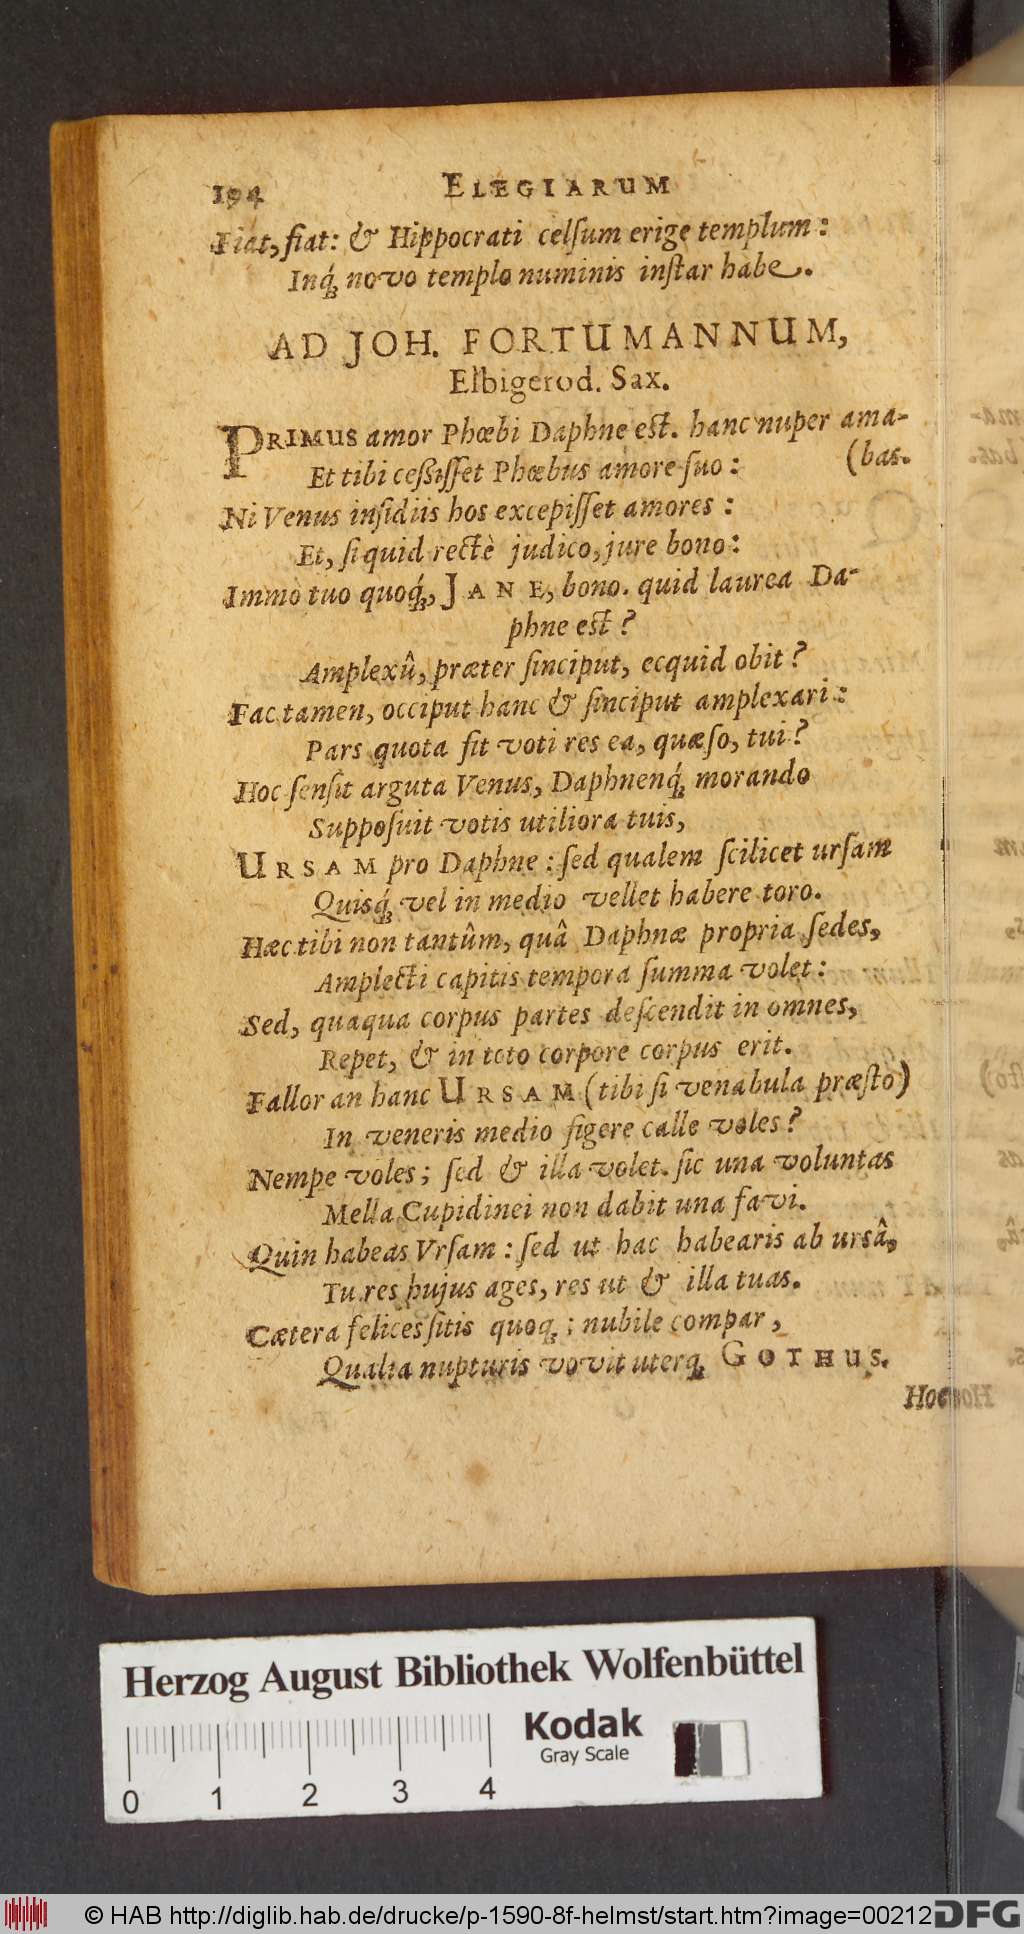 194 ELEGIARUM
Fiat, fiat: & Hippocrati celſum erige templum:
Inq́ꝫ novo templo numinis inſtar habe.
AD JOH. FORTUMANNUM,
Elbigerod. Sax.
PRIMUS amor Phœbi Daphne eſt. hanc nuper ama-
Et tibi ceßiſſet Phœbus amore ſuo: (bas.
Ni Venus inſidiis hos excepiſſet amores:
Et, ſi quid rectè judico, jure bono:
Immò tuo quoq́ꝫ, JANE, bono. quid laurea Da-
phne eſt?
Amplexû, præter ſinciput, ecquid obit?
Fac tamen, occiput hanc & ſinciput amplexari:
Pars quota ſit voti res ea, quæſo, tui?
Hoc ſenſit arguta Venus, Daphnenq́ꝫ morando
Suppoſuit votis utiliora tuis,
URSAM pro Daphne: ſed qualem ſcilicet urſam
Quisq́ꝫ vel in medio vellet habere toro.
Hæc tibi non tantûm, quâ Daphnæ propria ſedes,
Amplecti capitis tempora ſumma volet:
Sed, quaqua corpus partes deſcendit in omnes,
Repet, & in toto corpore corpus erit.
Fallor an hanc URSAM (tibi ſi venabula præſto)
In veneris medio figere calle voles?
Nempe voles; ſed & illa volet. ſic una voluntas
Mella Cupidinei non dabit una favi.
Quin habeas Vrſam: ſed ut hac habearis ab ursâ,
Tu res hujus ages, res ut & illa tuas.
Cætera felices ſitis quoqꝫ: nubile compar,
Qualia nupturis vovit uterqꝫ GOTHUS.
Hoc
Herzog August Bibliothek Wolfenbüttel
Kodak
Gray Scale
0 1 2 3 4
© HAB http://diglib.hab.de/drucke/p-1590-8f-helmst/start.htm?image=00212 DFG